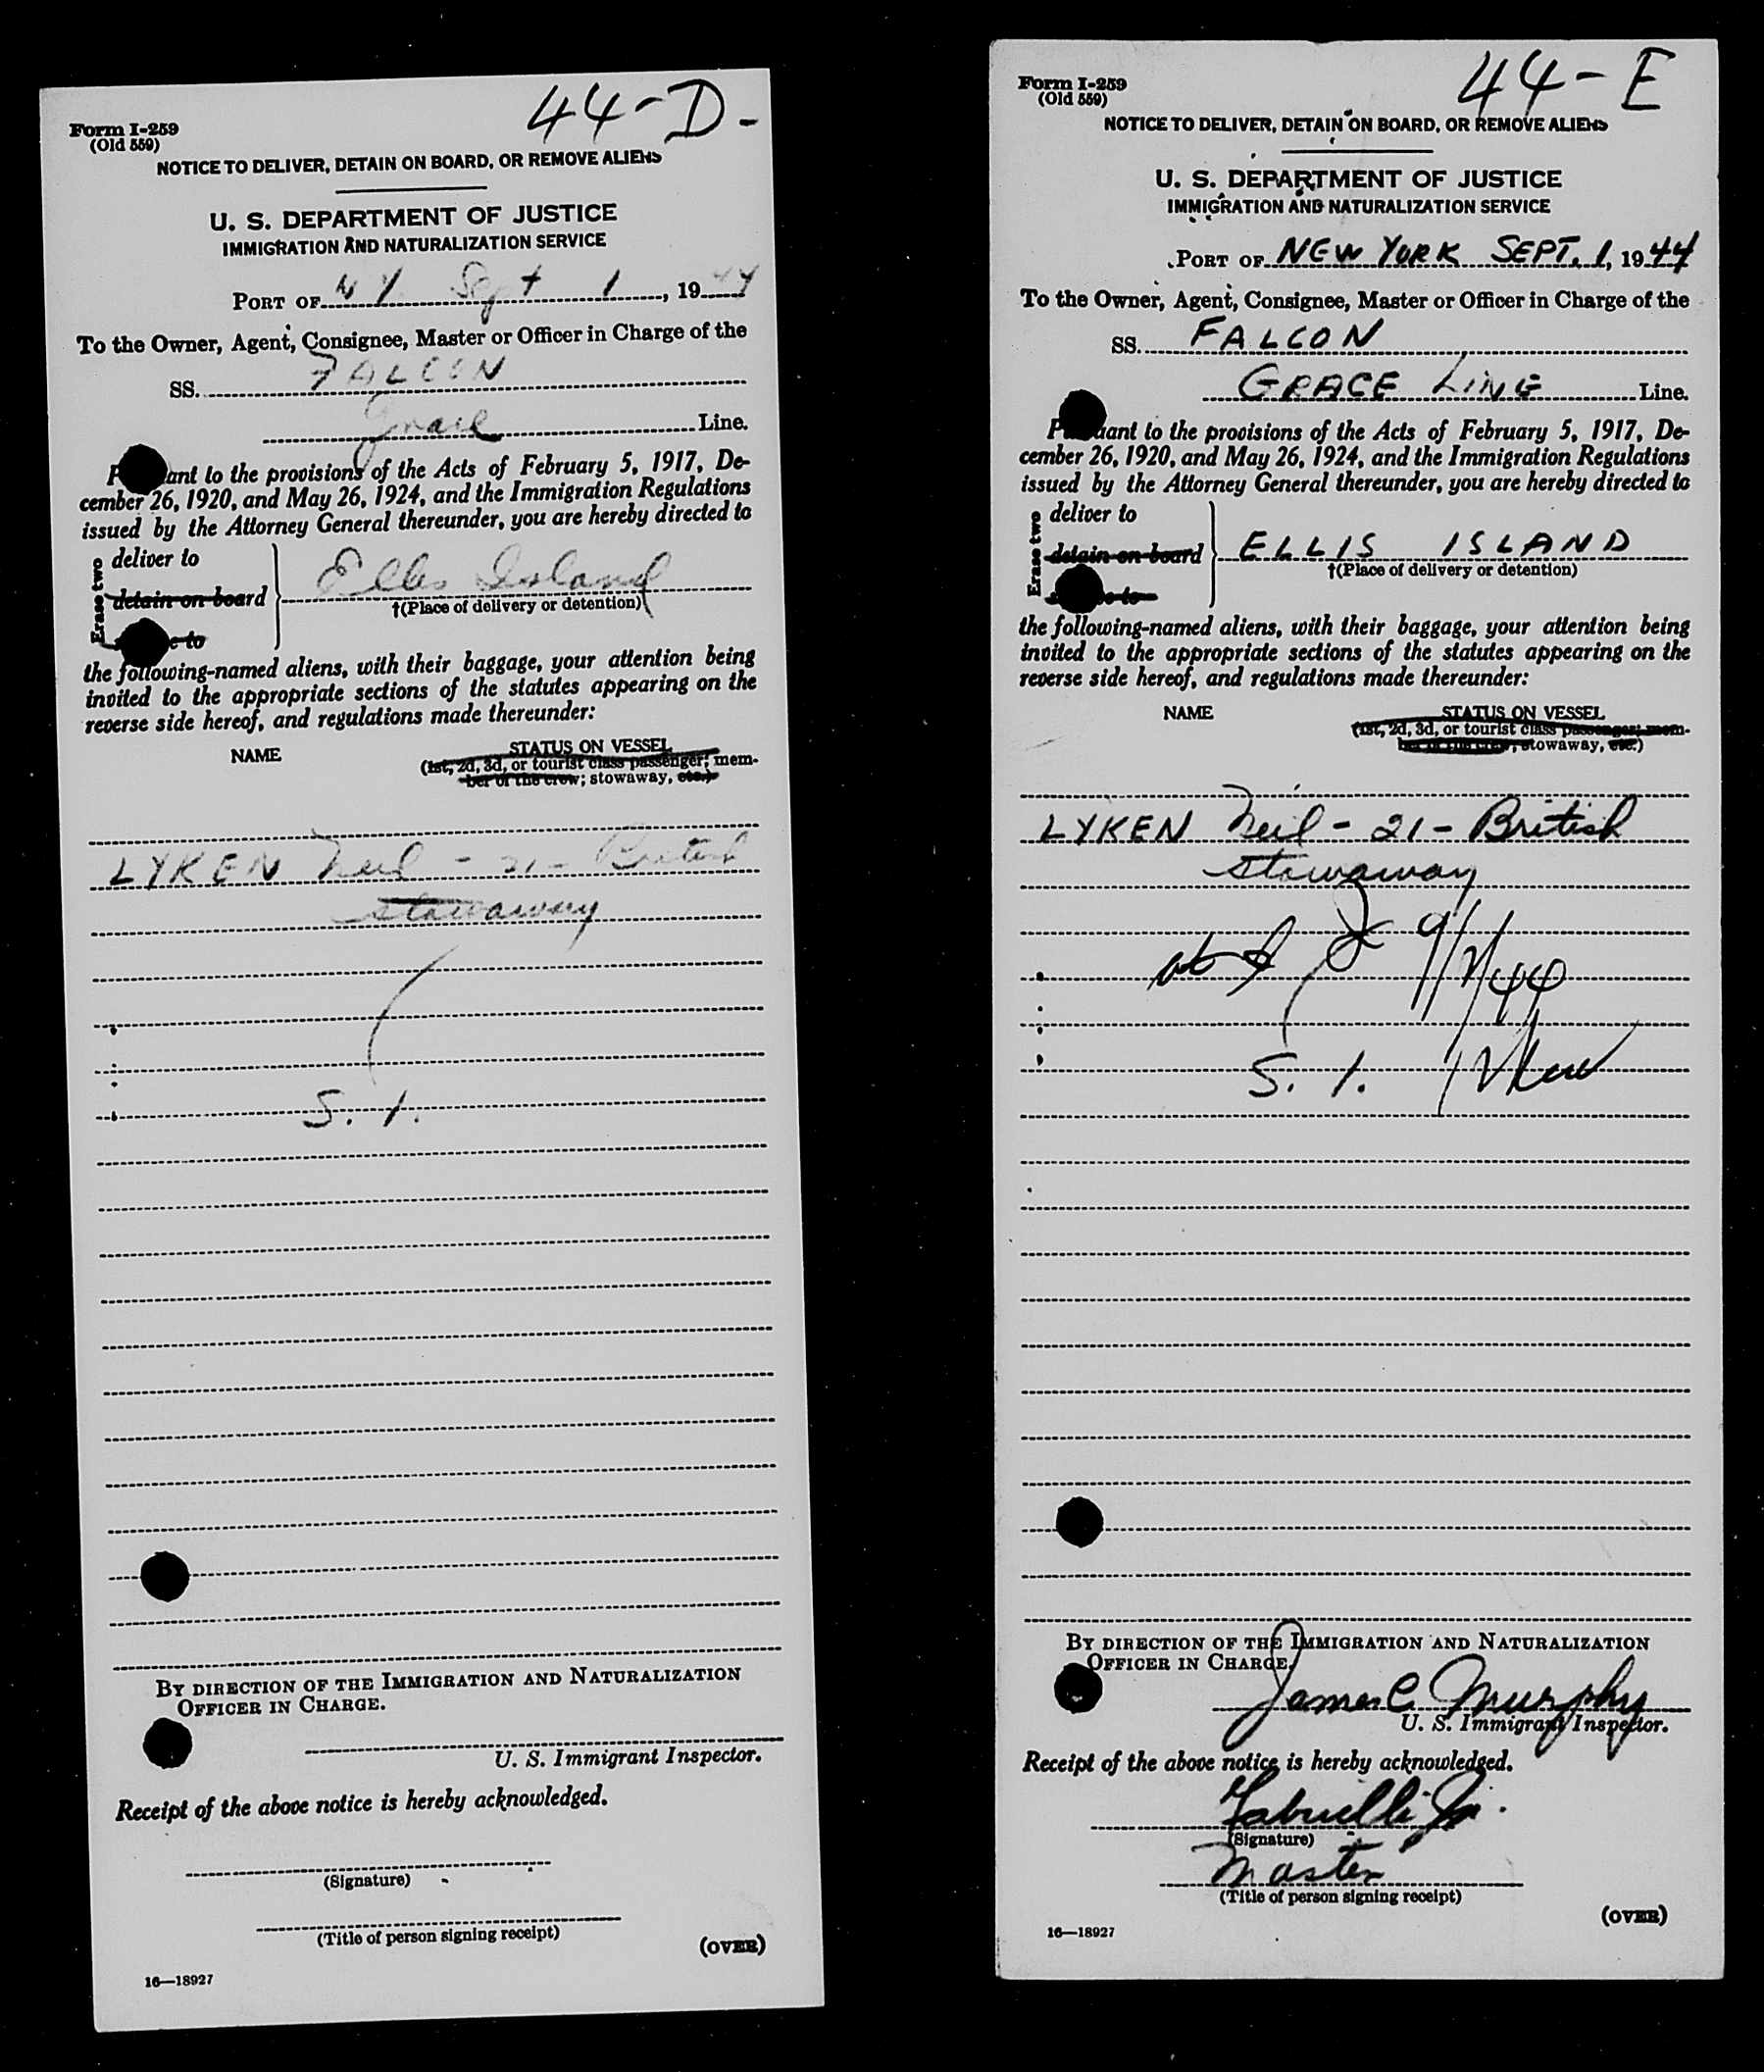 44-D-
Form I-259
(Old 559)
NOTICE TO DELIVER, DETAIN ON BOARD, OR REMOVE ALIENS
U. S. DEPARTMENT OF JUSTICE
IMMIGRATION AND NATURALIZATION SERVICE
PORT OF NY Sept 1, 1944
To the Owner, Agent, Consignee, Master or Officer in Charge of the
SS. FALCON
Grace Line.
ant to the provisions of the Acts of February 5, 1917, De-
cember 26, 1920, and May 26, 1924, and the Immigration Regulations
issued by the Attorney General thereunder, you are hereby directed to
Erase two
deliver to
detain on board
Ellis Island
†(Place of delivery or detention)
e to
the following-named aliens, with their baggage, your attention being
invited to the appropriate sections of the statutes appearing on the
reverse side hereof, and regulations made thereunder:
NAME STATUS ON VESSEL
(1st, 2d, 3d, or tourist class passenger; mem-
ber of the crew; stowaway, etc.)
LYKEN Neil - 21 - British
stowaway
S. I.
BY DIRECTION OF THE IMMIGRATION AND NATURALIZATION
OFFICER IN CHARGE.
U. S. Immigrant Inspector.
Receipt of the above notice is hereby acknowledged.
(Signature)
(Title of person signing receipt)
(OVER)
16—18927
44-E
Form I-259
(Old 559)
NOTICE TO DELIVER, DETAIN ON BOARD, OR REMOVE ALIENS
U. S. DEPARTMENT OF JUSTICE
IMMIGRATION AND NATURALIZATION SERVICE
PORT OF NEW YORK SEPT. 1, 1944
To the Owner, Agent, Consignee, Master or Officer in Charge of the
SS. FALCON
GRACE LINE Line.
P uant to the provisions of the Acts of February 5, 1917, De-
cember 26, 1920, and May 26, 1924, and the Immigration Regulations
issued by the Attorney General thereunder, you are hereby directed to
Erase two
deliver to
detain on board
ELLIS ISLAND
†(Place of delivery or detention)
e to
the following-named aliens, with their baggage, your attention being
invited to the appropriate sections of the statutes appearing on the
reverse side hereof, and regulations made thereunder:
NAME STATUS ON VESSEL
(1st, 2d, 3d, or tourist class passenger; mem-
ber of the crew; stowaway, etc.)
LYKEN Neil - 21 - British
stowaway
9/1/44
S. I.
BY DIRECTION OF THE IMMIGRATION AND NATURALIZATION
OFFICER IN CHARGE.
James C Murphy
U. S. Immigrant Inspector.
Receipt of the above notice is hereby acknowledged.
(Signature)
Master
(Title of person signing receipt)
(OVER)
16—18927